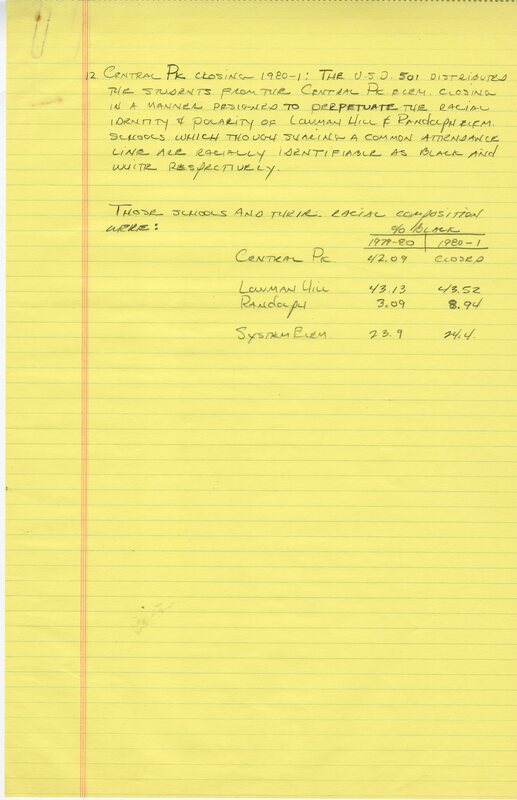 12 CENTRAL PK CLOSING 1980-1: THE U.S.D. 501 DISTRIBUTED
THE STUDENTS FROM THE CENTRAL PK ELEM. CLOSING
IN A MANNER DESIGNED TO PERPETUATE THE RACIAL
IDENTITY & POLARITY OF LOWMAN HILL & RANDOLPH ELEM.
SCHOOLS WHICH THOUGH SHARING A COMMON ATTENDANCE
LINE ARE RACIALLY IDENTIFIABLE AS BLACK AND
WHITE RESPECTIVELY.
THOSE SCHOOLS AND THEIR RACIAL COMPOSITION
WERE:
% BLACK
1979-80 1980-1
CENTRAL PK 42.09 CLOSED
LOWMAN HILL 43.13 43.52
RANDOLPH 3.09 8.94
SYSTEM ELEM 23.9 24.4